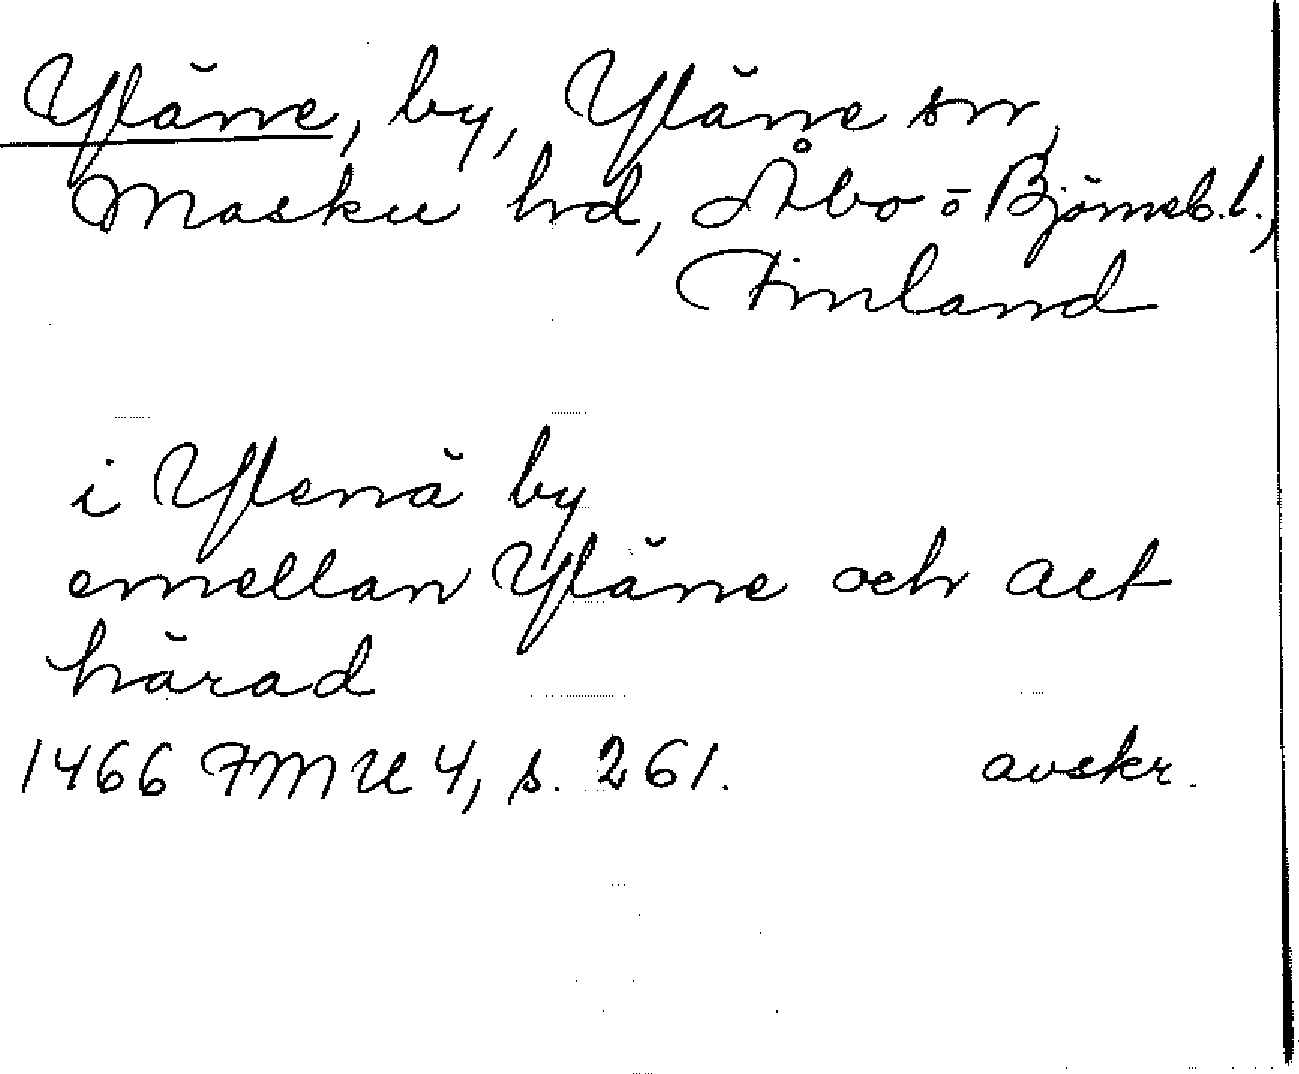 Yläne, by, Yläne sn,
Masku hd, Åbo-o Björneb. l.,
Finland
i Ylenä by
emellan Yläne och
härad
1466 FMU 4, s. 261. avskr.